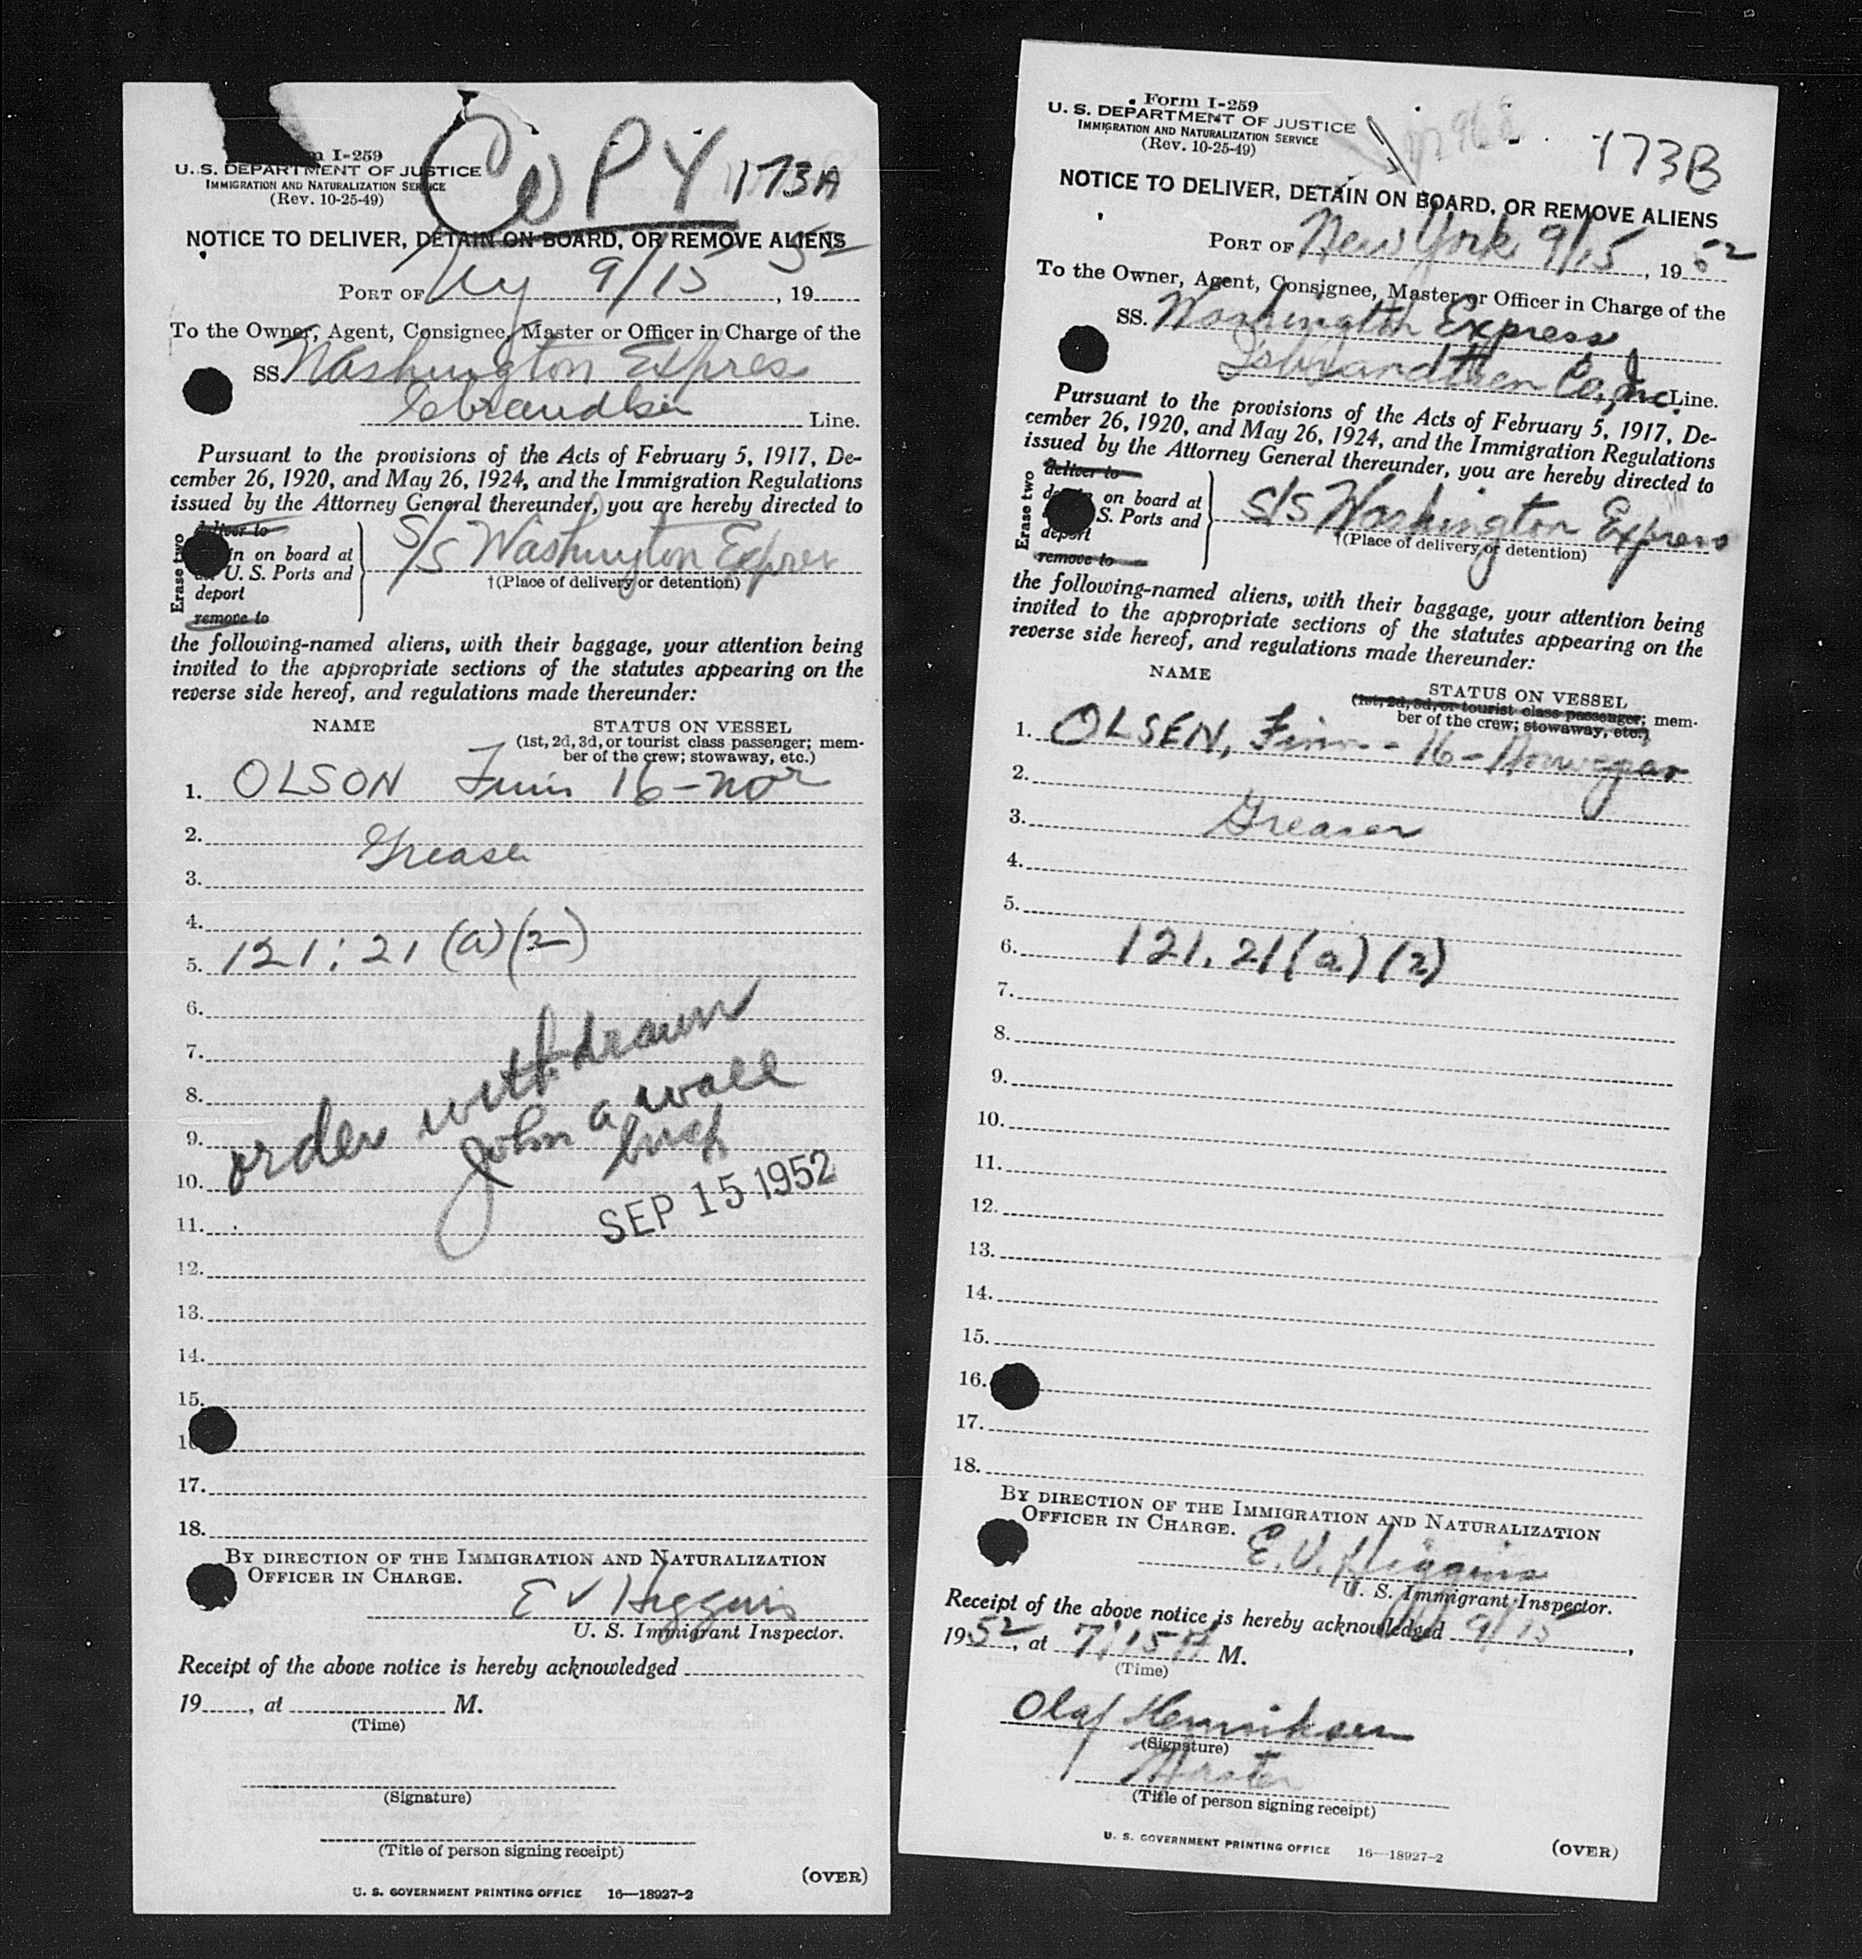 COPY
173A
m I-259
U. S. DEPARTMENT OF JUSTICE
IMMIGRATION AND NATURALIZATION SERVICE
(Rev. 10-25-49)
NOTICE TO DELIVER, DETAIN ON BOARD, OR REMOVE ALIENS
PORT OF NY 9/15, 19 52
To the Owner, Agent, Consignee, Master or Officer in Charge of the
SS. Washington Expres
Isbrandtsen Line.
Pursuant to the provisions of the Acts of February 5, 1917, De-
cember 26, 1920, and May 26, 1924, and the Immigration Regulations
issued by the Attorney General thereunder, you are hereby directed to
Erase two
deliver to
in on board at
U. S. Ports and
deport
remove to
S/S Washington Expres
†(Place of delivery or detention)
the following-named aliens, with their baggage, your attention being
invited to the appropriate sections of the statutes appearing on the
reverse side hereof, and regulations made thereunder:
NAME STATUS ON VESSEL
(1st, 2d, 3d, or tourist class passenger; mem-
ber of the crew; stowaway, etc.)
1. OLSON Finn 16-nor
2. Greaser
3.
4.
5. 121:21 (a)(2)
6.
7.
8.
9.
10.
order withdrawn
John A Wall
Insp
SEP 15 1952
11.
12.
13.
14.
15.
16
17.
18.
BY DIRECTION OF THE IMMIGRATION AND NATURALIZATION
OFFICER IN CHARGE.
E V Higgins
U. S. Immigrant Inspector.
Receipt of the above notice is hereby acknowledged
19, at M.
(Time)
(Signature)
(Title of person signing receipt)
(OVER)
U. S. GOVERNMENT PRINTING OFFICE 16—18927-2
Form I-259
U. S. DEPARTMENT OF JUSTICE
IMMIGRATION AND NATURALIZATION SERVICE
(Rev. 10-25-49)
173B
NOTICE TO DELIVER, DETAIN ON BOARD, OR REMOVE ALIENS
PORT OF New York 9/15, 19 52
To the Owner, Agent, Consignee, Master or Officer in Charge of the
SS. Washington Express
Isbrandtsen Co., Inc. Line.
Pursuant to the provisions of the Acts of February 5, 1917, De-
cember 26, 1920, and May 26, 1924, and the Immigration Regulations
issued by the Attorney General thereunder, you are hereby directed to
Erase two
deliver to
on board at
S. Ports and
deport
remove to
S/S Washington Express
†(Place of delivery or detention)
the following-named aliens, with their baggage, your attention being
invited to the appropriate sections of the statutes appearing on the
reverse side hereof, and regulations made thereunder:
NAME STATUS ON VESSEL
(1st, 2d, 3d, or tourist class passenger; mem-
ber of the crew; stowaway, etc.)
1. OLSEN, Finn - 16 - Norwegian
2.
3. Greaser
4.
5.
6. 121.21(a)(2)
7.
8.
9.
10.
11.
12.
13.
14.
15.
16.
17.
18.
BY DIRECTION OF THE IMMIGRATION AND NATURALIZATION
OFFICER IN CHARGE.
E. V. Higgins
U. S. Immigrant Inspector.
Receipt of the above notice is hereby acknowledged 9/15,
1952, at 7:15 A M.
(Time)
Olaf Henriksen
(Signature)
Master
(Title of person signing receipt)
U. S. GOVERNMENT PRINTING OFFICE 16—18927-2
(OVER)